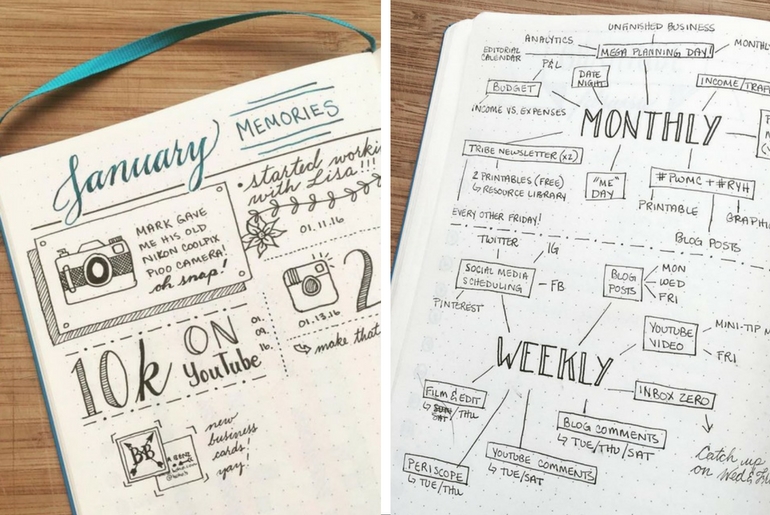 January
MEMORIES
MARK GAVE
ME HIS OLD
NIKON COOLPIX
P100 CAMERA!
oh snap!
• started worki
with Lisa!!!
01.11.16
01.13.16
2
make that
10k ON
YouTube
01.
09.
16.
BB
new
business
cards!
yay!
UNFINISHED BUSINESS
ANALYTICS
MEGA PLANNING DAY!
MONTHL
EDITORIAL
CALENDAR
P&L
DATE
NIGHT
BUDGET
INCOME/TRAF
INCOME VS. EXPENSES
MONTHLY
TRIBE NEWSLETTER (x2)
2 PRINTABLES (FREE)
↳ RESOURCE LIBRARY
"ME"
DAY
#PWMC + #RYH
PRINTABLE
GRAPHI
BLOG POSTS
EVERY OTHER FRIDAY!
TWITTER
IG
SOCIAL MEDIA
SCHEDULING
FB
PINTEREST
BLOG
POSTS
MON
WED
FRI
YOUTUBE
VIDEO
MINI-TIP M
FRI
WEEKLY
FILM & EDIT
↳ SUN/THU
SAT
INBOX ZERO
BLOG COMMENTS
↳ TUE/THU/SAT
Catch up
on Wed &
PERISCOPE
↳ TUE/THU
YOUTUBE COMMENTS
↳ TUE/SAT